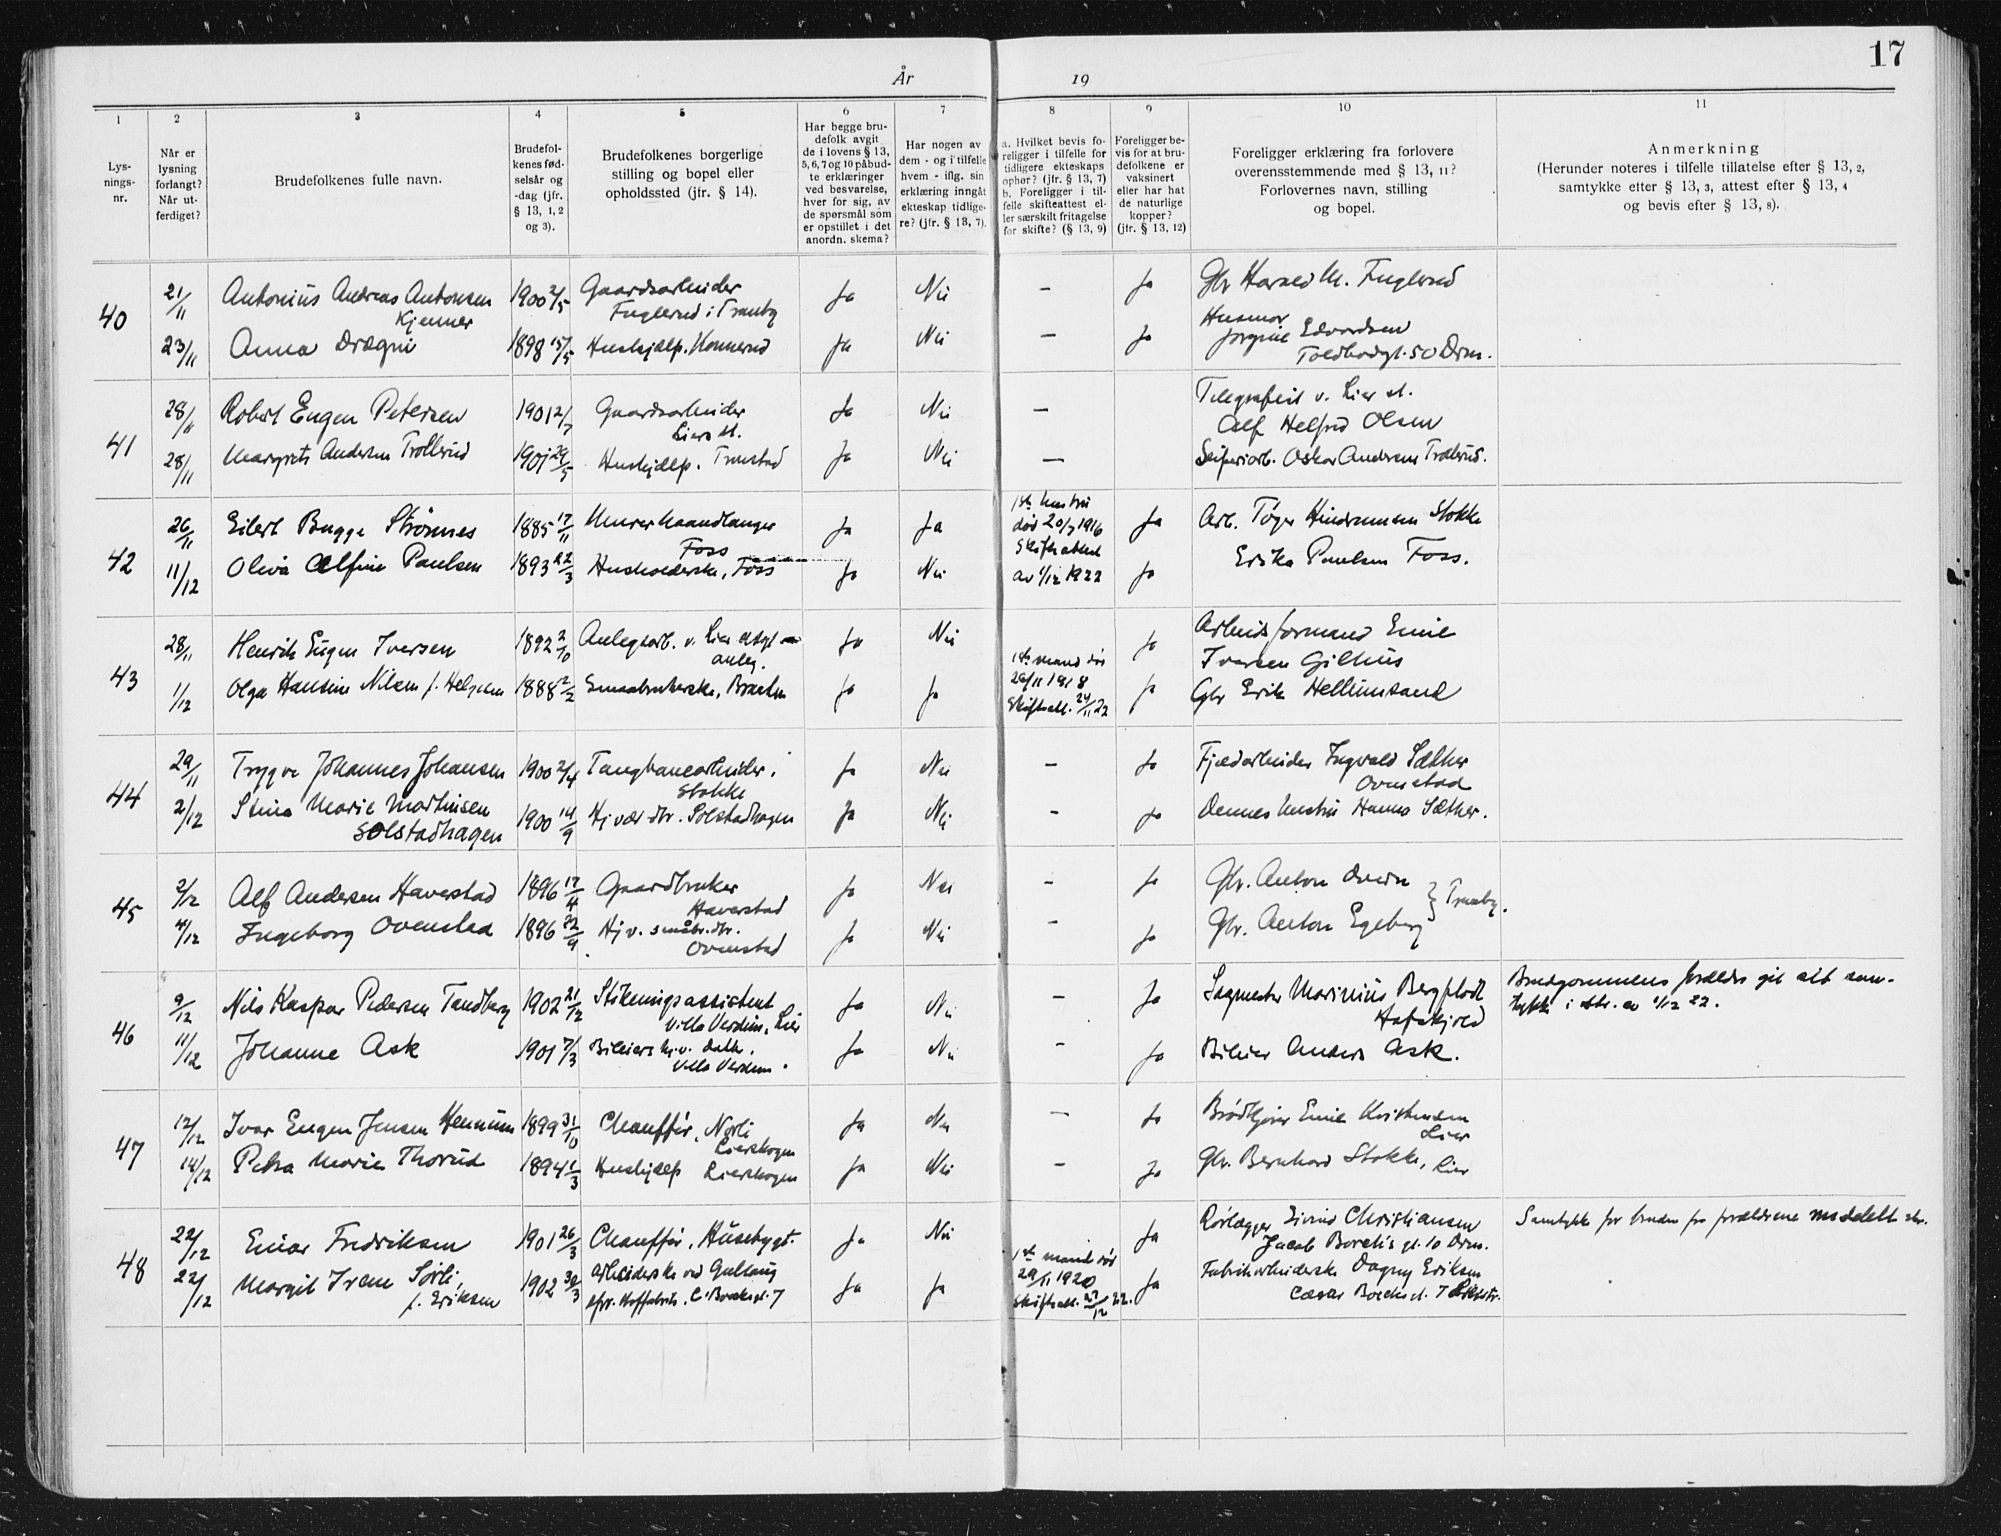 17
År 19
1 2 3 4 5 6 7 8 9 10 11
Lys-
nings-
nr.
Når er
lysning
forlangt?
Når ut-
ferdiget?
Brudefolkenes fulle navn.
Brudefol-
kenes fød-
selsår og
-dag (jfr.
§ 13, 1, 2
og 3).
Brudefolkenes borgerlige
stilling og bopel eller
opholdssted (jfr. § 14).
Har begge bru-
defolk avgit
de i lovens § 13,
5, 6, 7 og 10 påbud-
te erklæringer
ved besvarelse,
hver for sig, av
de spørsmål som
er opstillet i det
anordn. skema?
Har nogen av
dem - og i tilfelle
hvem - iflg. sin
erklæring inngåt
ekteskap tidlige-
re? (jfr. § 13, 7).
a. Hvilket bevis fo-
religger i tilfelle for
tidligere ekteskaps
ophør? (jfr. § 13, 7)
b. Foreligger i til-
felle skifteattest el-
ler særskilt fritagelse
for skifte? (§ 13, 9)
Foreligger be-
vis for at bru-
defolkene er
vaksinert
eller har hat
de naturlige
kopper?
(jfr. § 13, 12)
Foreligger erklæring fra forlovere
overensstemmende med § 13, 11?
Forlovernes navn, stilling
og bopel.
Anmerkning
(Herunder noteres i tilfelle tillatelse efter § 13, 2,
samtykke efter § 13, 3, attest efter § 13, 4
og bevis efter § 13, 8).
40
21/11 Antonius Andreas Antonsen
Kjenner
1900 2/5 Gaardsarbeider
Fuglerud i Tranby
Ja Nei – Ja Gbr Harald M. Fuglerud
23/11 Anna Drægni 1898 15/5 Hushjælp. Konnerud Ja Nei – Ja Husmor
Jørgine Edvardsen
Toldbodgt. 50 Drm.
41
28/11 Robert Eugen Petersen 1901 2/7 Gaardsarbeider
Lier st.
Ja Nei – Telegrafist v. Lier st.
Alf Helfred Olsen
28/11 Margrete Andersen Trollerud 1901 29/5 Hushjælp. Tronstad Ja Nei – Oskar Andersen Trollerud.
42
26/11 Eilert Bugge Strømnes 1885 17/11 Murerhaandlanger
Foss
Ja Ja 1ste hustru
død 20/7 1916
Skifteattest
av 1/12 1922
Ja Arb. Tøger Hindremsen Stokke
11/12 Oliva Alfine Paulsen 1893 22/3 Husholderske, Foss Ja Nei Ja Erika Paulsen Foss.
43
28/11 Henrik Eugen Iversen 1892 2/10 Anlegsarb. v. Lier
anleg.
Ja Nei Ja Arbeidsformand Emil
Iversen Gilhus
1/12 Olga Hansine Nilsen f. Helgesen 1888 2/2 Smaabrukerske, Ja Ja 1ste mand død
29/11 1918
Skifteatt. 24/11 22
Ja Gbr Erik Hellumsand
44
29/11 Trygve Johannes Johansen 1900 2/4 Taugbanearbeider,
Stokke
Ja Nei – Ja Ingvald Sæther
Ovnstad
2/12 Stina Marie Martinsen
Solstadhagen
1900 14/9 Hj vær. dtr. Solstadhagen Ja Nei – Ja Dennes hustru Hanna Sæther.
45
2/12 Alf Andersen Haverstad 1896 17/4 Gaardbruker
Haverstad
Ja Nei – Ja Gbr. Anton
4/12 Ingeborg Ovenstad 1896 22/9 Hj v. småbr. dtr.
Ovenstad
Ja Nei – Ja Gbr. Anton Egeberg } Tranby.
46
9/12 Nils Kaspar Pedersen Tandberg 1902 21/12 Stikningsassistent
Villa Verdun, Lier
Ja Nei – Ja Sagmester Marinius Bergflødt
Hafskjold
Brudgommens forældre git sit sam-
tykke i skr. av 1/12 22.
11/12 Johanne Ask 1901 7/3 Bileiers hj. v. datter.
Villa Verdun.
Ja Nei – Ja Bileier Anders Ask.
47
12/12 Ivar Eugen Jensen Hennum 1899 31/10 Chauffør, Nørli
Lierskogen
Ja Nei – Ja Brødkjører Emil Kristensen
Lier
14/12 Petra Marie Thorud 1894 1/3 Hushjælp Lierskogen Ja Nei – Ja Gbr. Bernhard Stokke, Lier
48
22/12 Einar Fredriksen 1901 26/3 Chauffør, Husebygt. Ja Nei Ja Rørlægger Eivind Christiansen
Jacob Borchs gt. 10 Drm.
Samtykke for bruden fra forældrene meddelt skr.
22/12 Margit Irene Sørli,
f. Eriksen
1902 30/3 Arbeiderske ved Gullaug
Ja Ja 1ste mand død
29/11 1920
Skifteatt. 27/12 22.
Ja Fabrikarbeiderske Dagny Eriksen
Cæsar Borchs gt. 7